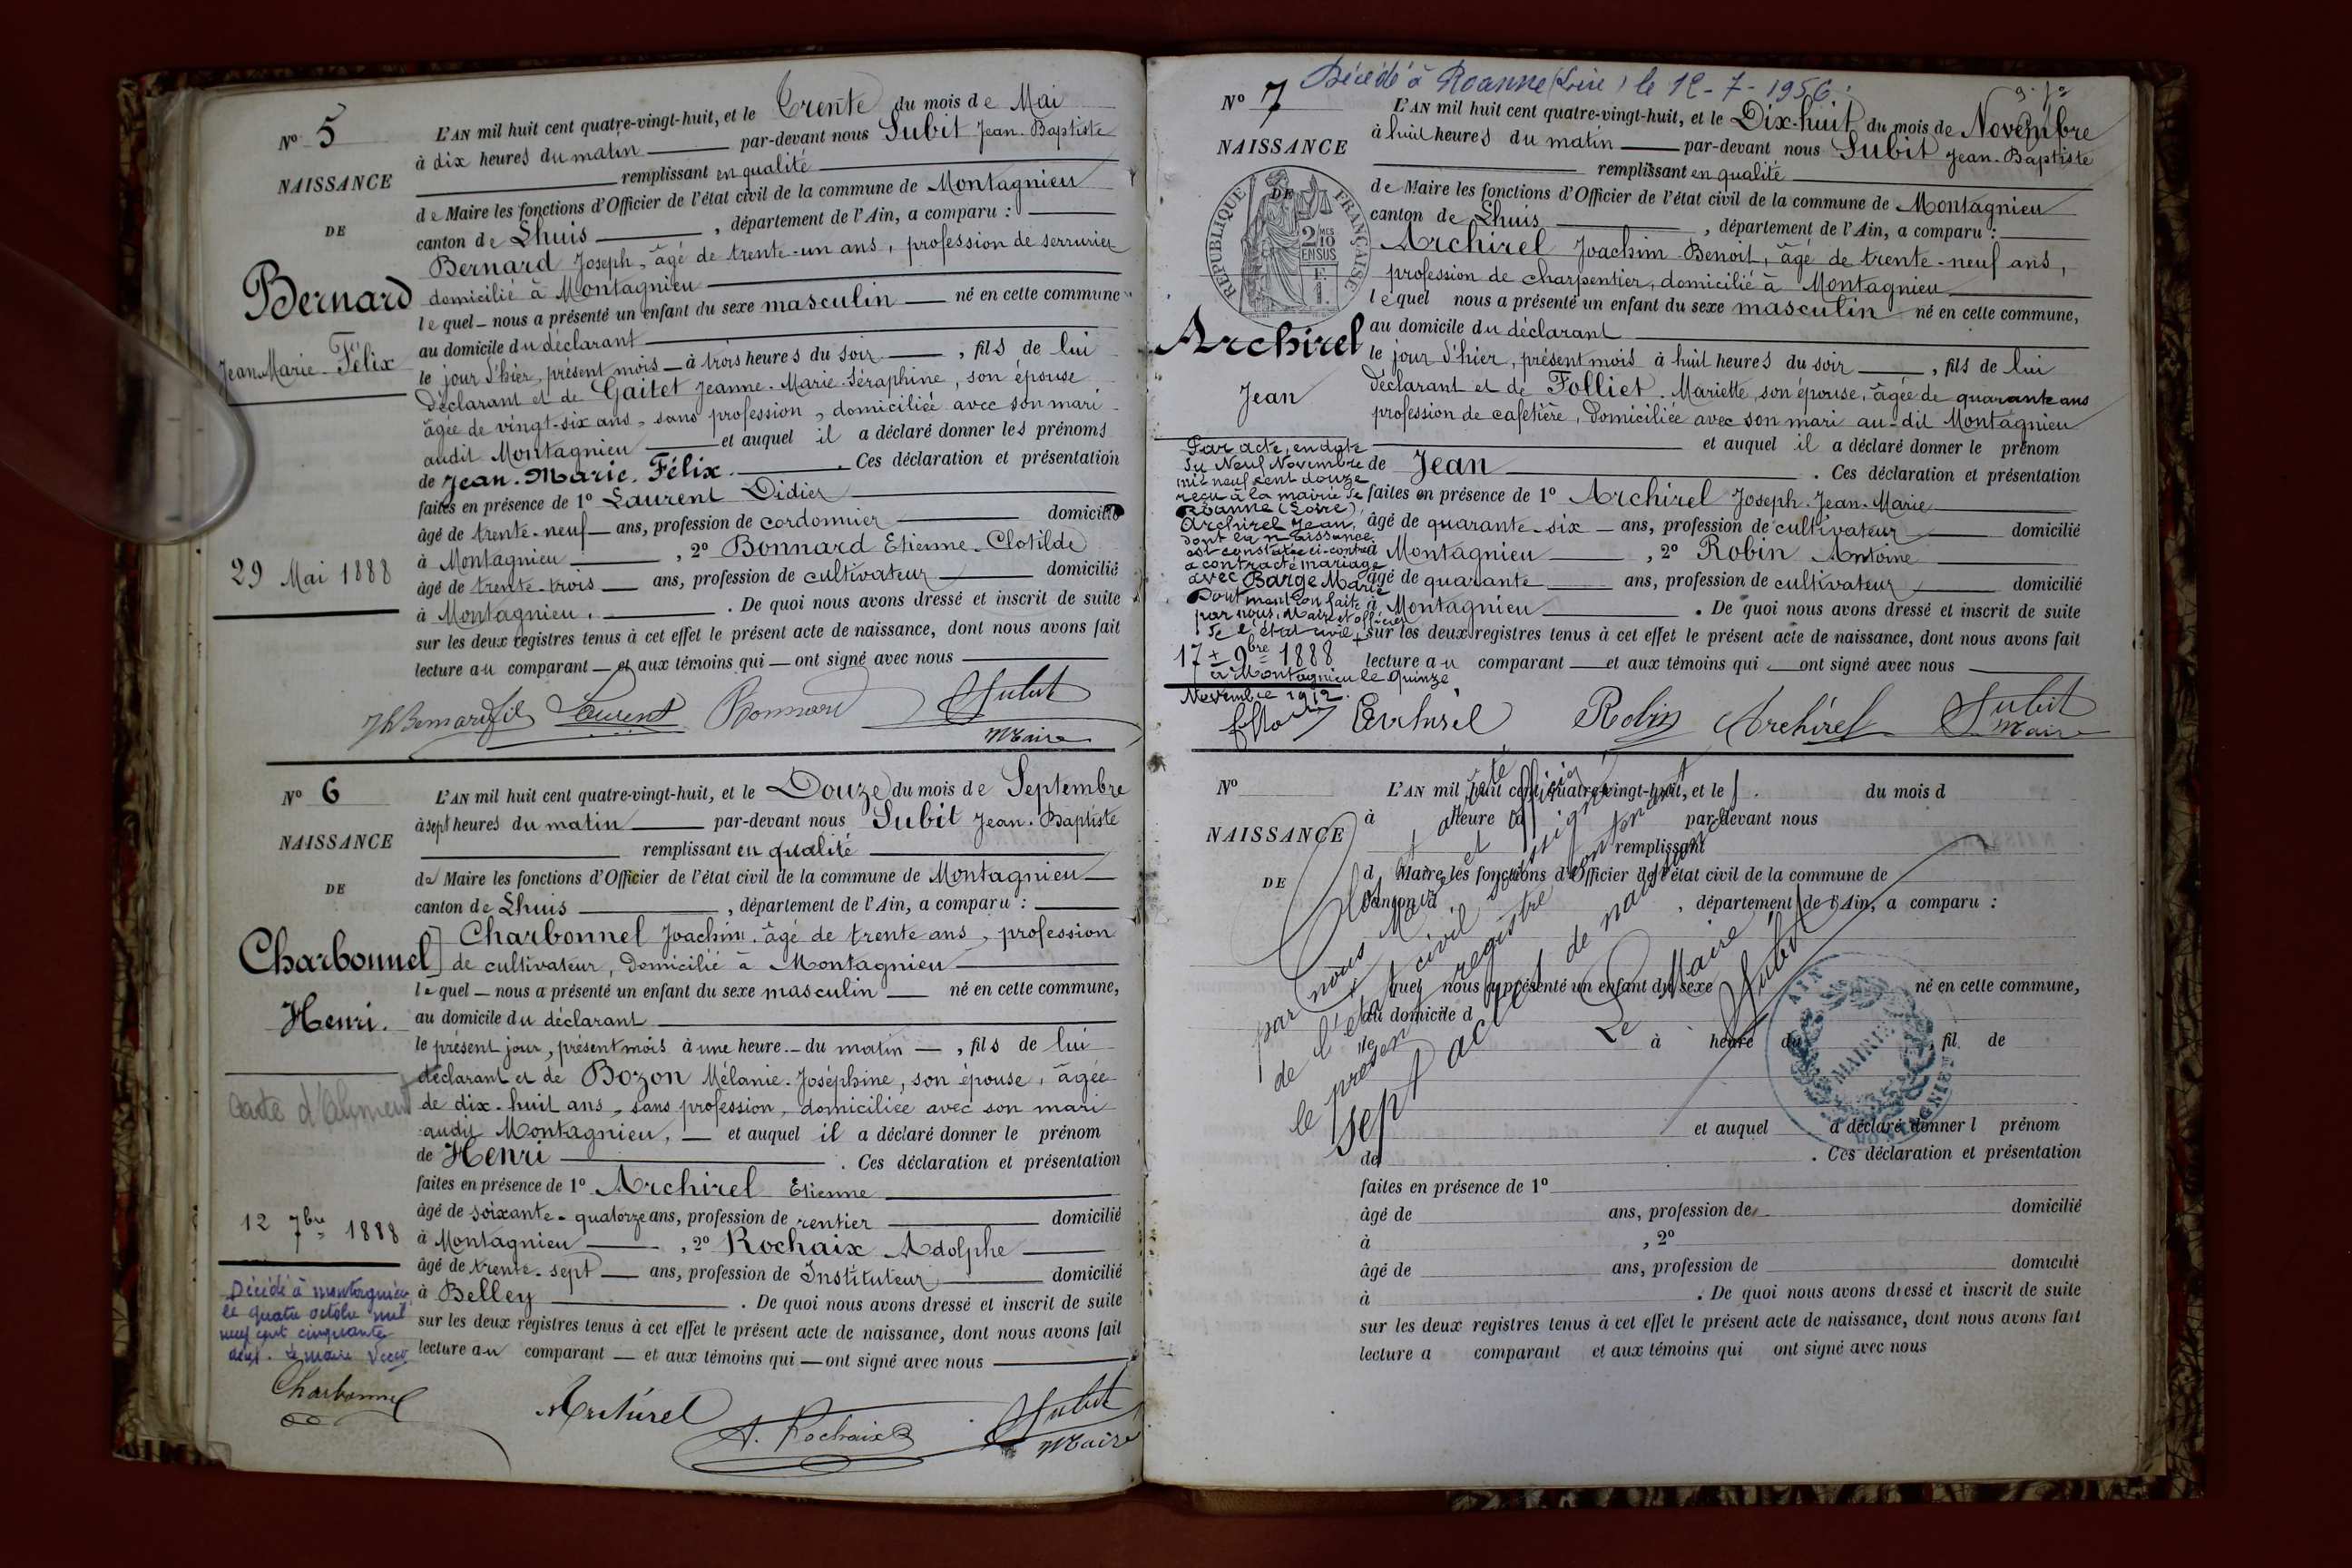 N° 5
NAISSANCE
DE
Bernard
Jean-Marie-Félix
29 Mai 1888
L'AN mil huit cent quatre-vingt-huit, et le Trente du mois de Mai
à dix heures du matin par-devant nous Subit Jean-Baptiste
remplissant en qualité
de Maire les fonctions d'Officier de l'état civil de la commune de Montagnieu
canton de Lhuis , département de l'Ain, a comparu :
Bernard Joseph, âgé de trente-un ans, profession de serrurier
domicilié à Montagnieu
lequel nous a présenté un enfant du sexe masculin né en cette commune
au domicile du déclarant
le jour d'hier, présent mois à trois heures du soir , fils de lui
déclarant et de Gaitet Jeanne-Marie-Séraphine, son épouse
âgée de vingt-six ans, sans profession, domiciliée avec son mari
audit Montagnieu et auquel il a déclaré donner les prénoms
de Jean-Marie-Félix . Ces déclaration et présentation
faites en présence de 1° Laurent Didier
âgé de trente-neuf ans, profession de cordonnier domicilié
à Montagnieu , 2° Bonnard Etienne-Clotilde
âgé de trente-trois ans, profession de cultivateur domicilié
à Montagnieu . De quoi nous avons dressé et inscrit de suite
sur les deux registres tenus à cet effet le présent acte de naissance, dont nous avons fait
lecture au comparant et aux témoins qui ont signé avec nous
Jh Bernard fils Laurent Bonnard Subit
Maire
N° 6
NAISSANCE
DE
Charbonnel
Henri.
Carte d'aliment
12 7bre 1888
Décédé à Montagnieu
le quatre octobre mil
neuf cent cinquante
Le Maire
L'AN mil huit cent quatre-vingt-huit, et le Douze du mois de Septembre
à sept heures du matin par-devant nous Subit Jean-Baptiste
remplissant en qualité
de Maire les fonctions d'Officier de l'état civil de la commune de Montagnieu
canton de Lhuis , département de l'Ain, a comparu :
Charbonnel Joachim, âgé de trente ans, profession
de cultivateur, domicilié à Montagnieu
lequel nous a présenté un enfant du sexe masculin né en cette commune,
au domicile du déclarant
le présent jour, présent mois à une heure du matin , fils de lui
déclarant et de Bozon Mélanie-Joséphine, son épouse, âgée
de dix-huit ans, sans profession, domiciliée avec son mari
audit Montagnieu, et auquel il a déclaré donner le prénom
de Henri . Ces déclaration et présentation
faites en présence de 1° Archirel Etienne
âgé de soixante-quatorze ans, profession de rentier domicilié
à Montagnieu , 2° Rochaix Adolphe
âgé de trente-sept ans, profession de Instituteur domicilié
à Belley . De quoi nous avons dressé et inscrit de suite
sur les deux registres tenus à cet effet le présent acte de naissance, dont nous avons fait
lecture au comparant et aux témoins qui ont signé avec nous
Charbonnel Archirel A. Rochaix Subit
Maire
Décédé à Roanne (Loire) le 12-7-1956.
N° 7
NAISSANCE
DE
RÉPUBLIQUE FRANÇAISE
2 MES
10
EN SUS
Archirel
Jean
Par acte, en date
du Neuf Novembre
mil neuf cent douze
reçu à la mairie de
Roanne (Loire),
Archirel Jean,
dont la naissance
est constatée ci-contre
a contracté mariage
avec Barge Marie
Dont mention faite
par nous, Maire et officier
de l'état civil +
17 9bre 1888
+ à Montagnieu le quinze
Novembre 1912.
L'AN mil huit cent quatre-vingt-huit, et le Dix-huit du mois de Novembre
à huit heures du matin par-devant nous Subit Jean-Baptiste
remplissant en qualité
de Maire les fonctions d'Officier de l'état civil de la commune de Montagnieu
canton de Lhuis , département de l'Ain, a comparu :
Archirel Joachim-Benoit, âgé de trente-neuf ans,
profession de charpentier, domicilié à Montagnieu
lequel nous a présenté un enfant du sexe masculin né en cette commune,
au domicile du déclarant
le jour d'hier, présent mois à huit heures du soir , fils de lui
déclarant et de Folliet Mariette, son épouse, âgée de quarante ans
profession de cafetière, domiciliée avec son mari au-dit Montagnieu
et auquel il a déclaré donner le prénom
de Jean . Ces déclaration et présentation
faites en présence de 1° Archirel Joseph-Jean-Marie
âgé de quarante-six ans, profession de cultivateur domicilié
à Montagnieu , 2° Robin Antoine
âgé de quarante ans, profession de cultivateur domicilié
à Montagnieu . De quoi nous avons dressé et inscrit de suite
sur les deux registres tenus à cet effet le présent acte de naissance, dont nous avons fait
lecture au comparant et aux témoins qui ont signé avec nous
Archirel Robin Archirel Subit
Maire
N°
NAISSANCE
DE
L'AN mil huit cent quatre-vingt-huit, et le du mois d
à heure d par-devant nous
remplissant
d Maire les fonctions d'Officier de l'état civil de la commune de
canton d , département de l'Ain, a comparu :
l quel nous a présenté un enfant du sexe né en cette commune,
au domicile d
le à heure du , fil de
et auquel a déclaré donner l prénom
de . Ces déclaration et présentation
faites en présence de 1°
âgé de ans, profession de domicilié
à , 2°
âgé de ans, profession de domicilié
à . De quoi nous avons dressé et inscrit de suite
sur les deux registres tenus à cet effet le présent acte de naissance, dont nous avons fait
lecture a comparant et aux témoins qui ont signé avec nous
Clos et arrêté
par nous Maire et officier
de l'état civil soussigné
le présent registre contenant
sept actes de naissance
Le Maire
Subit
AIN
MAIRIE
MONTAGNIEU